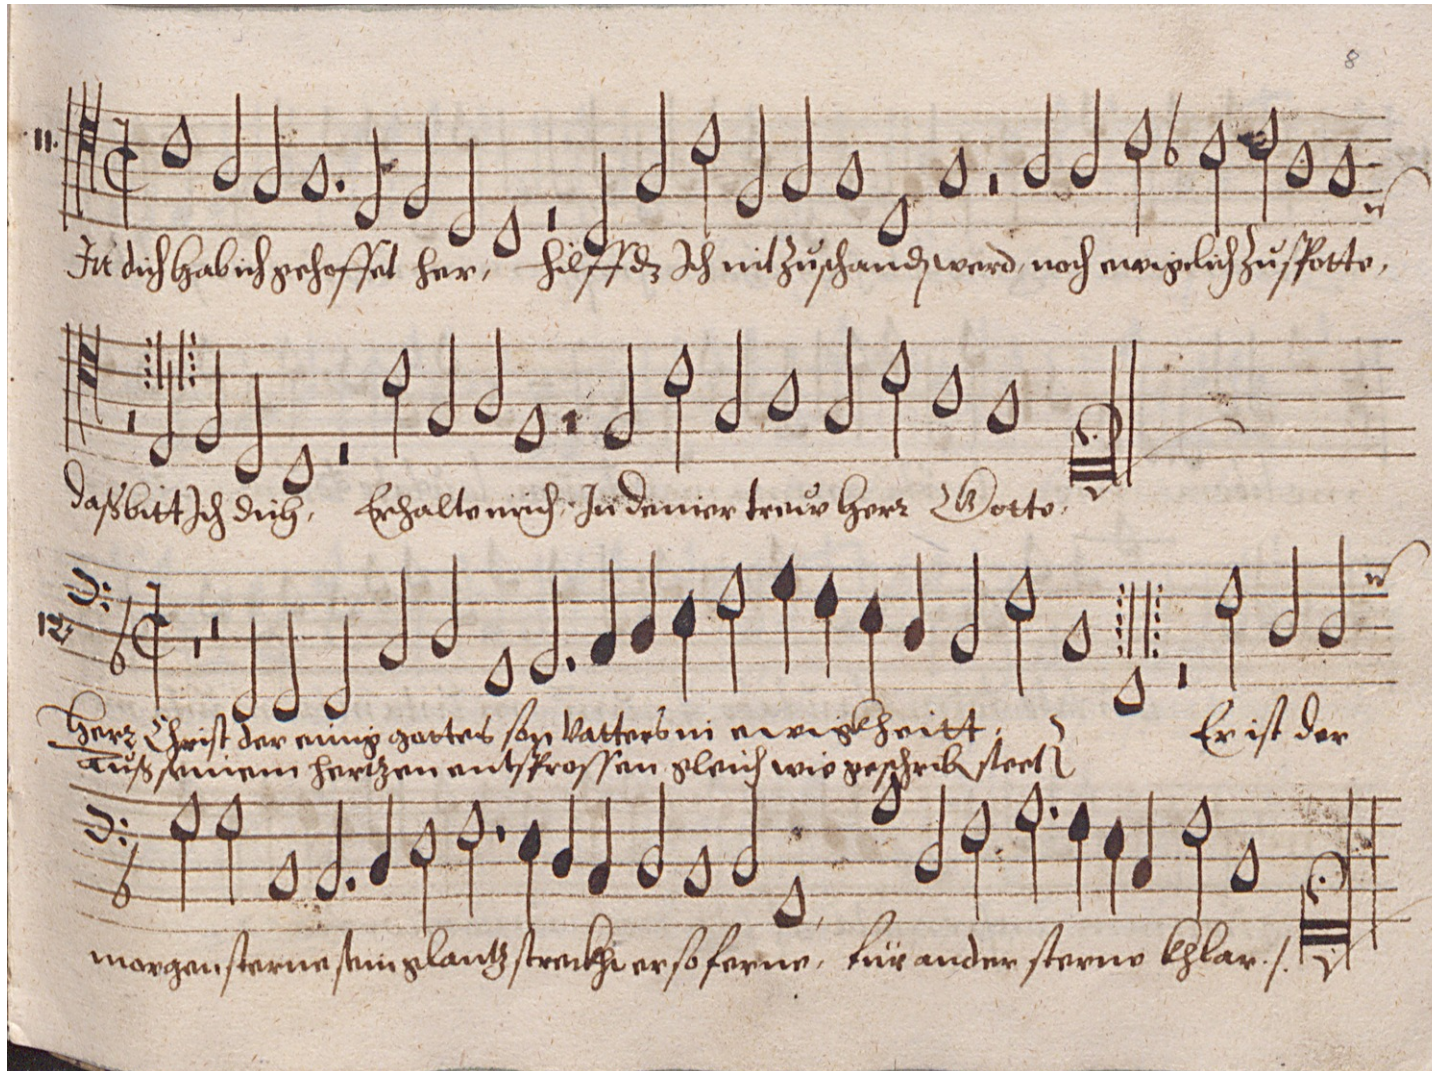 8
11.
In dich hab ich gehoffet her, hilff dz Ich nit zu schand werd, noch ewigclich zu spotte,
daß bitt Ich dich, Erhalte mich, In deiner trew herr Gotte,
12
Herr Christ der einig gottes son Vatters in ewigkheitt,
Er ist der
Auß seinem hertzen entsprossen gleich wie geschrib steet
morgensterne sein glantz streckh er so ferne, für ander sterne khlar.